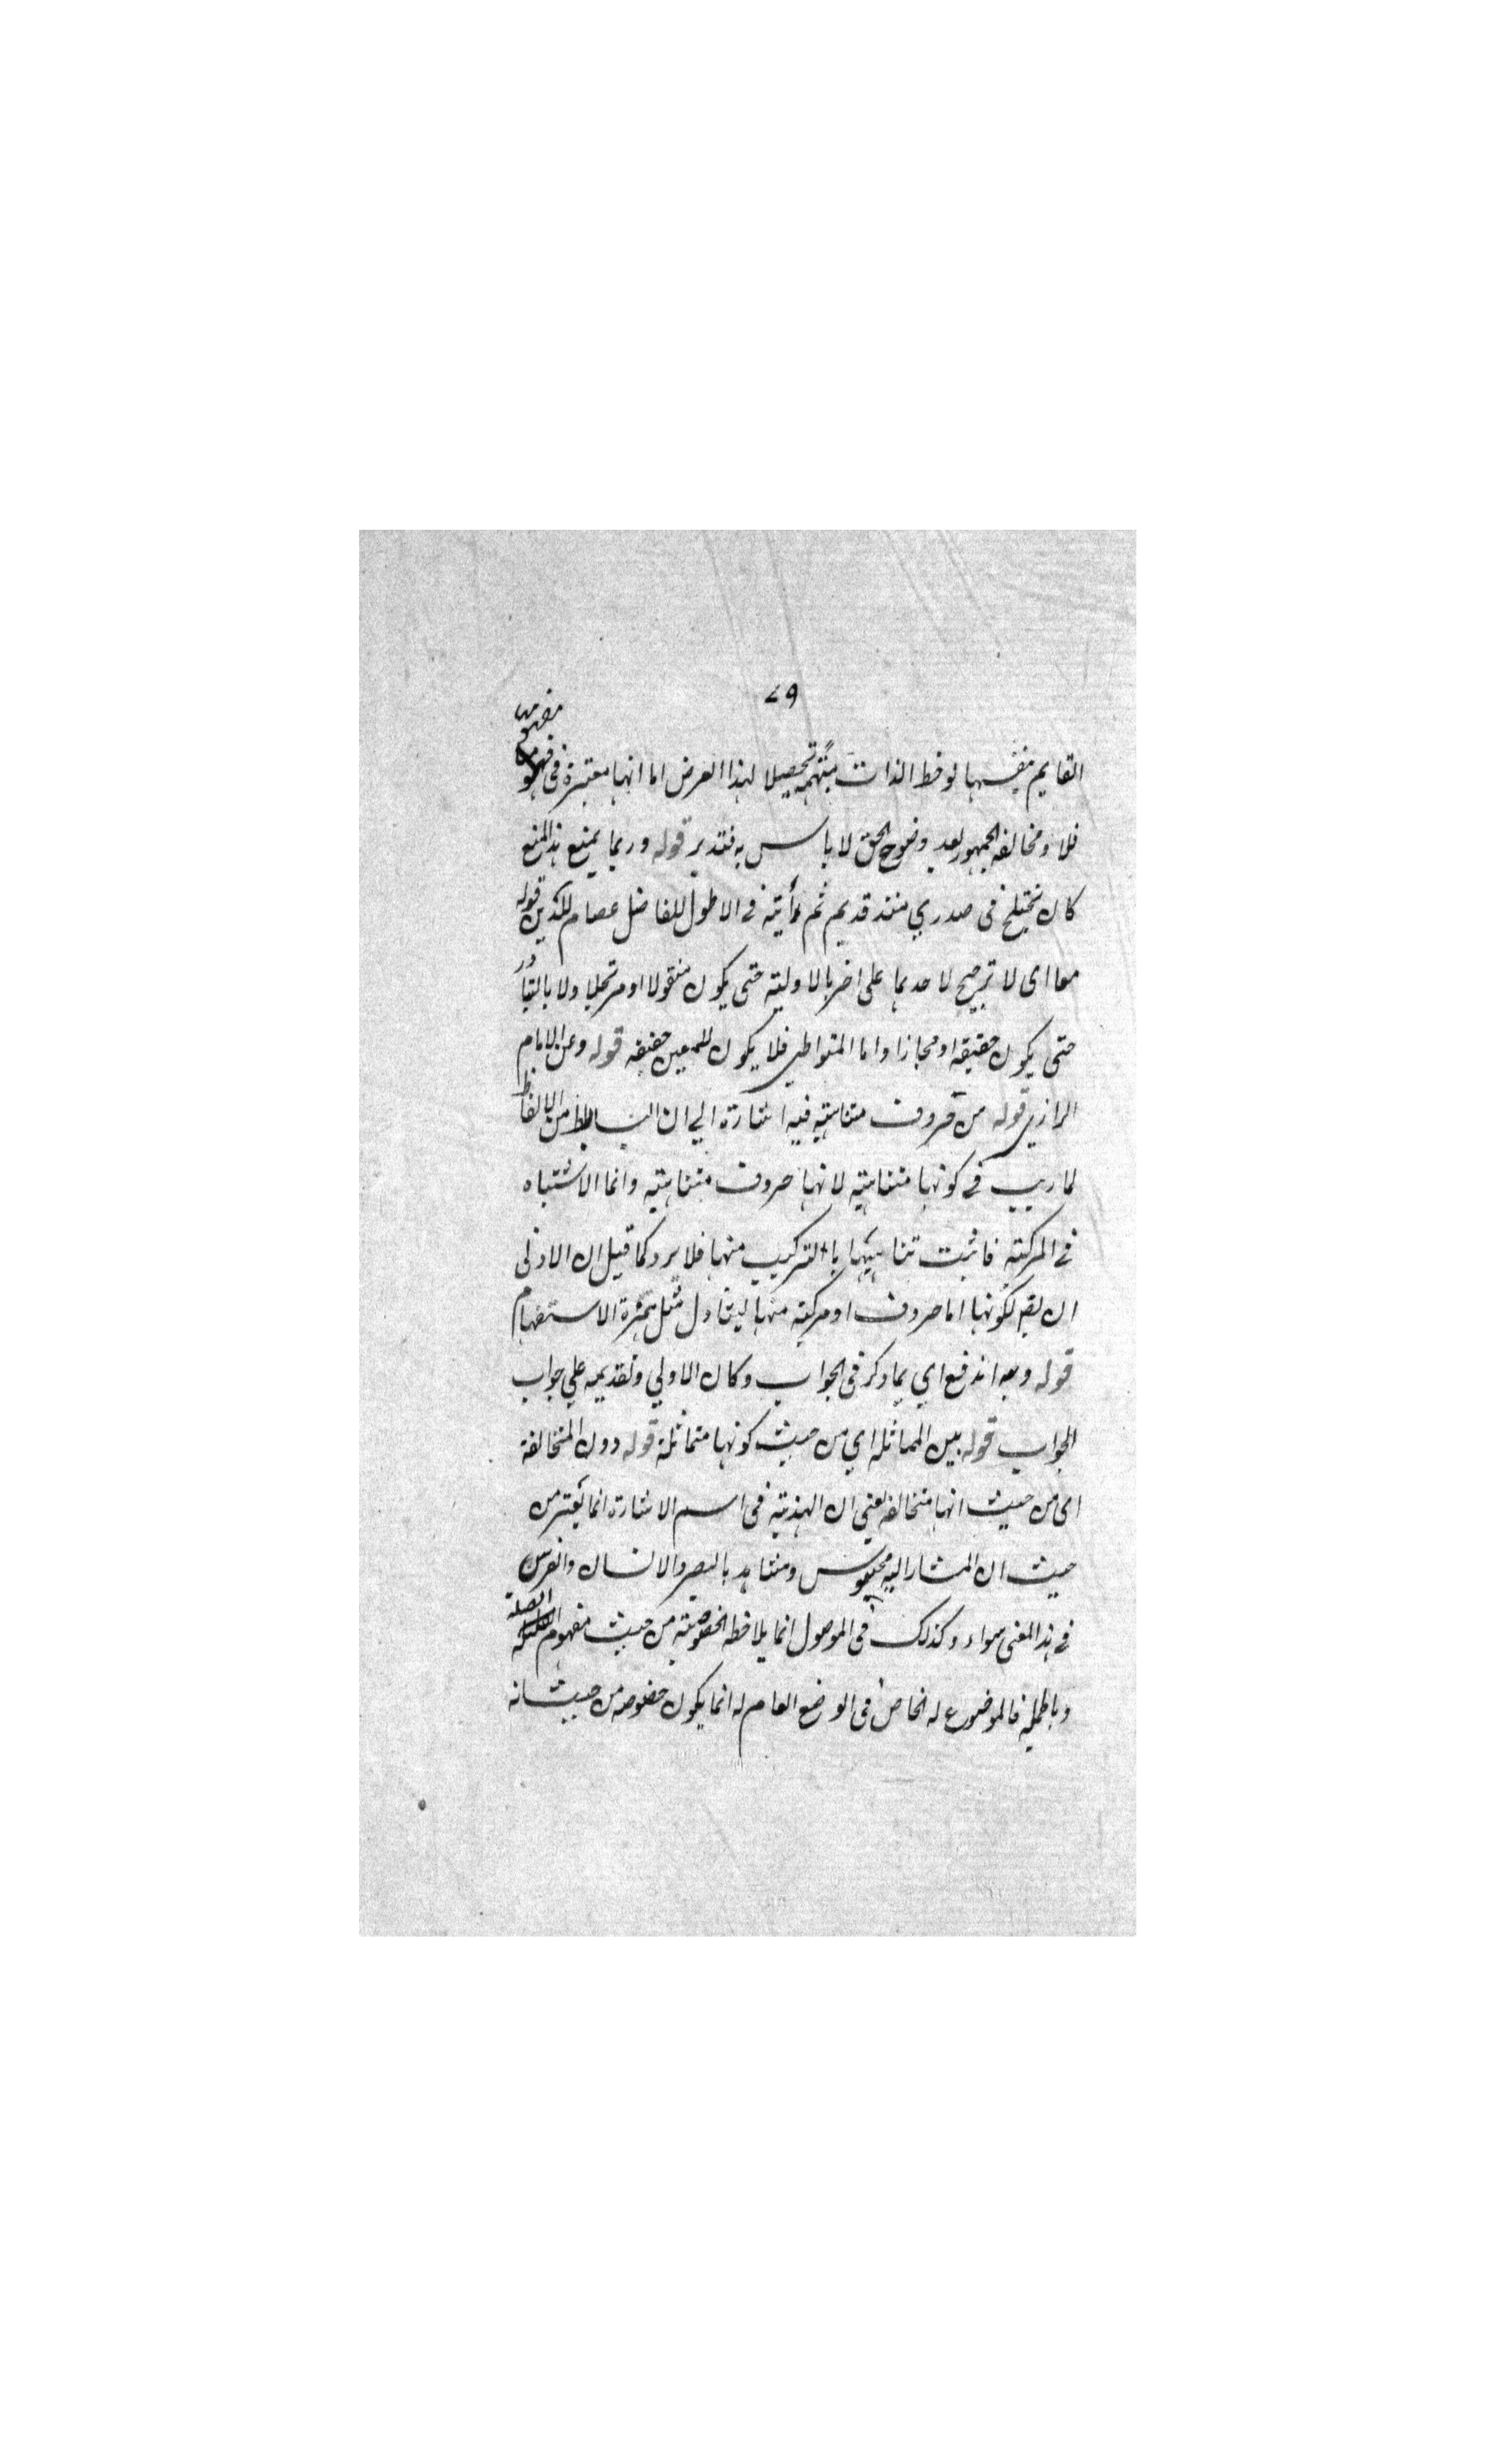 ٧٩
مفهومه
القايم بنفسها لوحظ الذات مبهمة تحصيلا لهذا الغرض اما انها معتبرة فى
فلا ومخالفة الجمهور بعد وضوح الحق لا باس به فتدبر قوله وربما يمنع هذا المنع
كان يختلج فى صدري منذ قديم ثم رأيته فى الاطول للفاضل عصام الدين قوله
معا اى لا ترجيح لاحدهما على اخر بالاولية حتى يكون منقولا او مرتجلا ولا بالتبادر
حتى يكون حقيقة او مجازا واما المتواطي فلا يكون للمعين حقيقة قوله وعن الامام
الرازي قوله من حروف متناهية فيه اشارة الي ان البسائط من الالفاظ
لا ريب فى كونها متناهية لانها حروف متناهية وانما الاشتباه
فى المركبة فاثبت تناهيها بالتركيب منها فلا يرد كما قيل ان الاولى
ان يقم لكونها اما حروف او مركبة منها ليتناول مثل همزة الاستفهام
قوله وبه اندفع اي بما ذكر فى الجواب وكان الاولي وتقديمه علي جواب
الجواب قوله بين المماثلة اي من حيث كونها متماثلة قوله دون المتخالفة
اى من حيث انها متخالفة يعني ان الهذية فى اسم الاشارة انما يعتبر من
حيث ان المشار اليه محسوس ومشاهد بالبصر والانسان والفرس
فى هذا المعنى سواء وكذلك فى الموصول انما يلاحظ الخصوصية من حيث مفهوم الصلة
وبالجملة فالموضوع له الخاص فى الوضع العام له انما يكون خصوصه من حيث انه